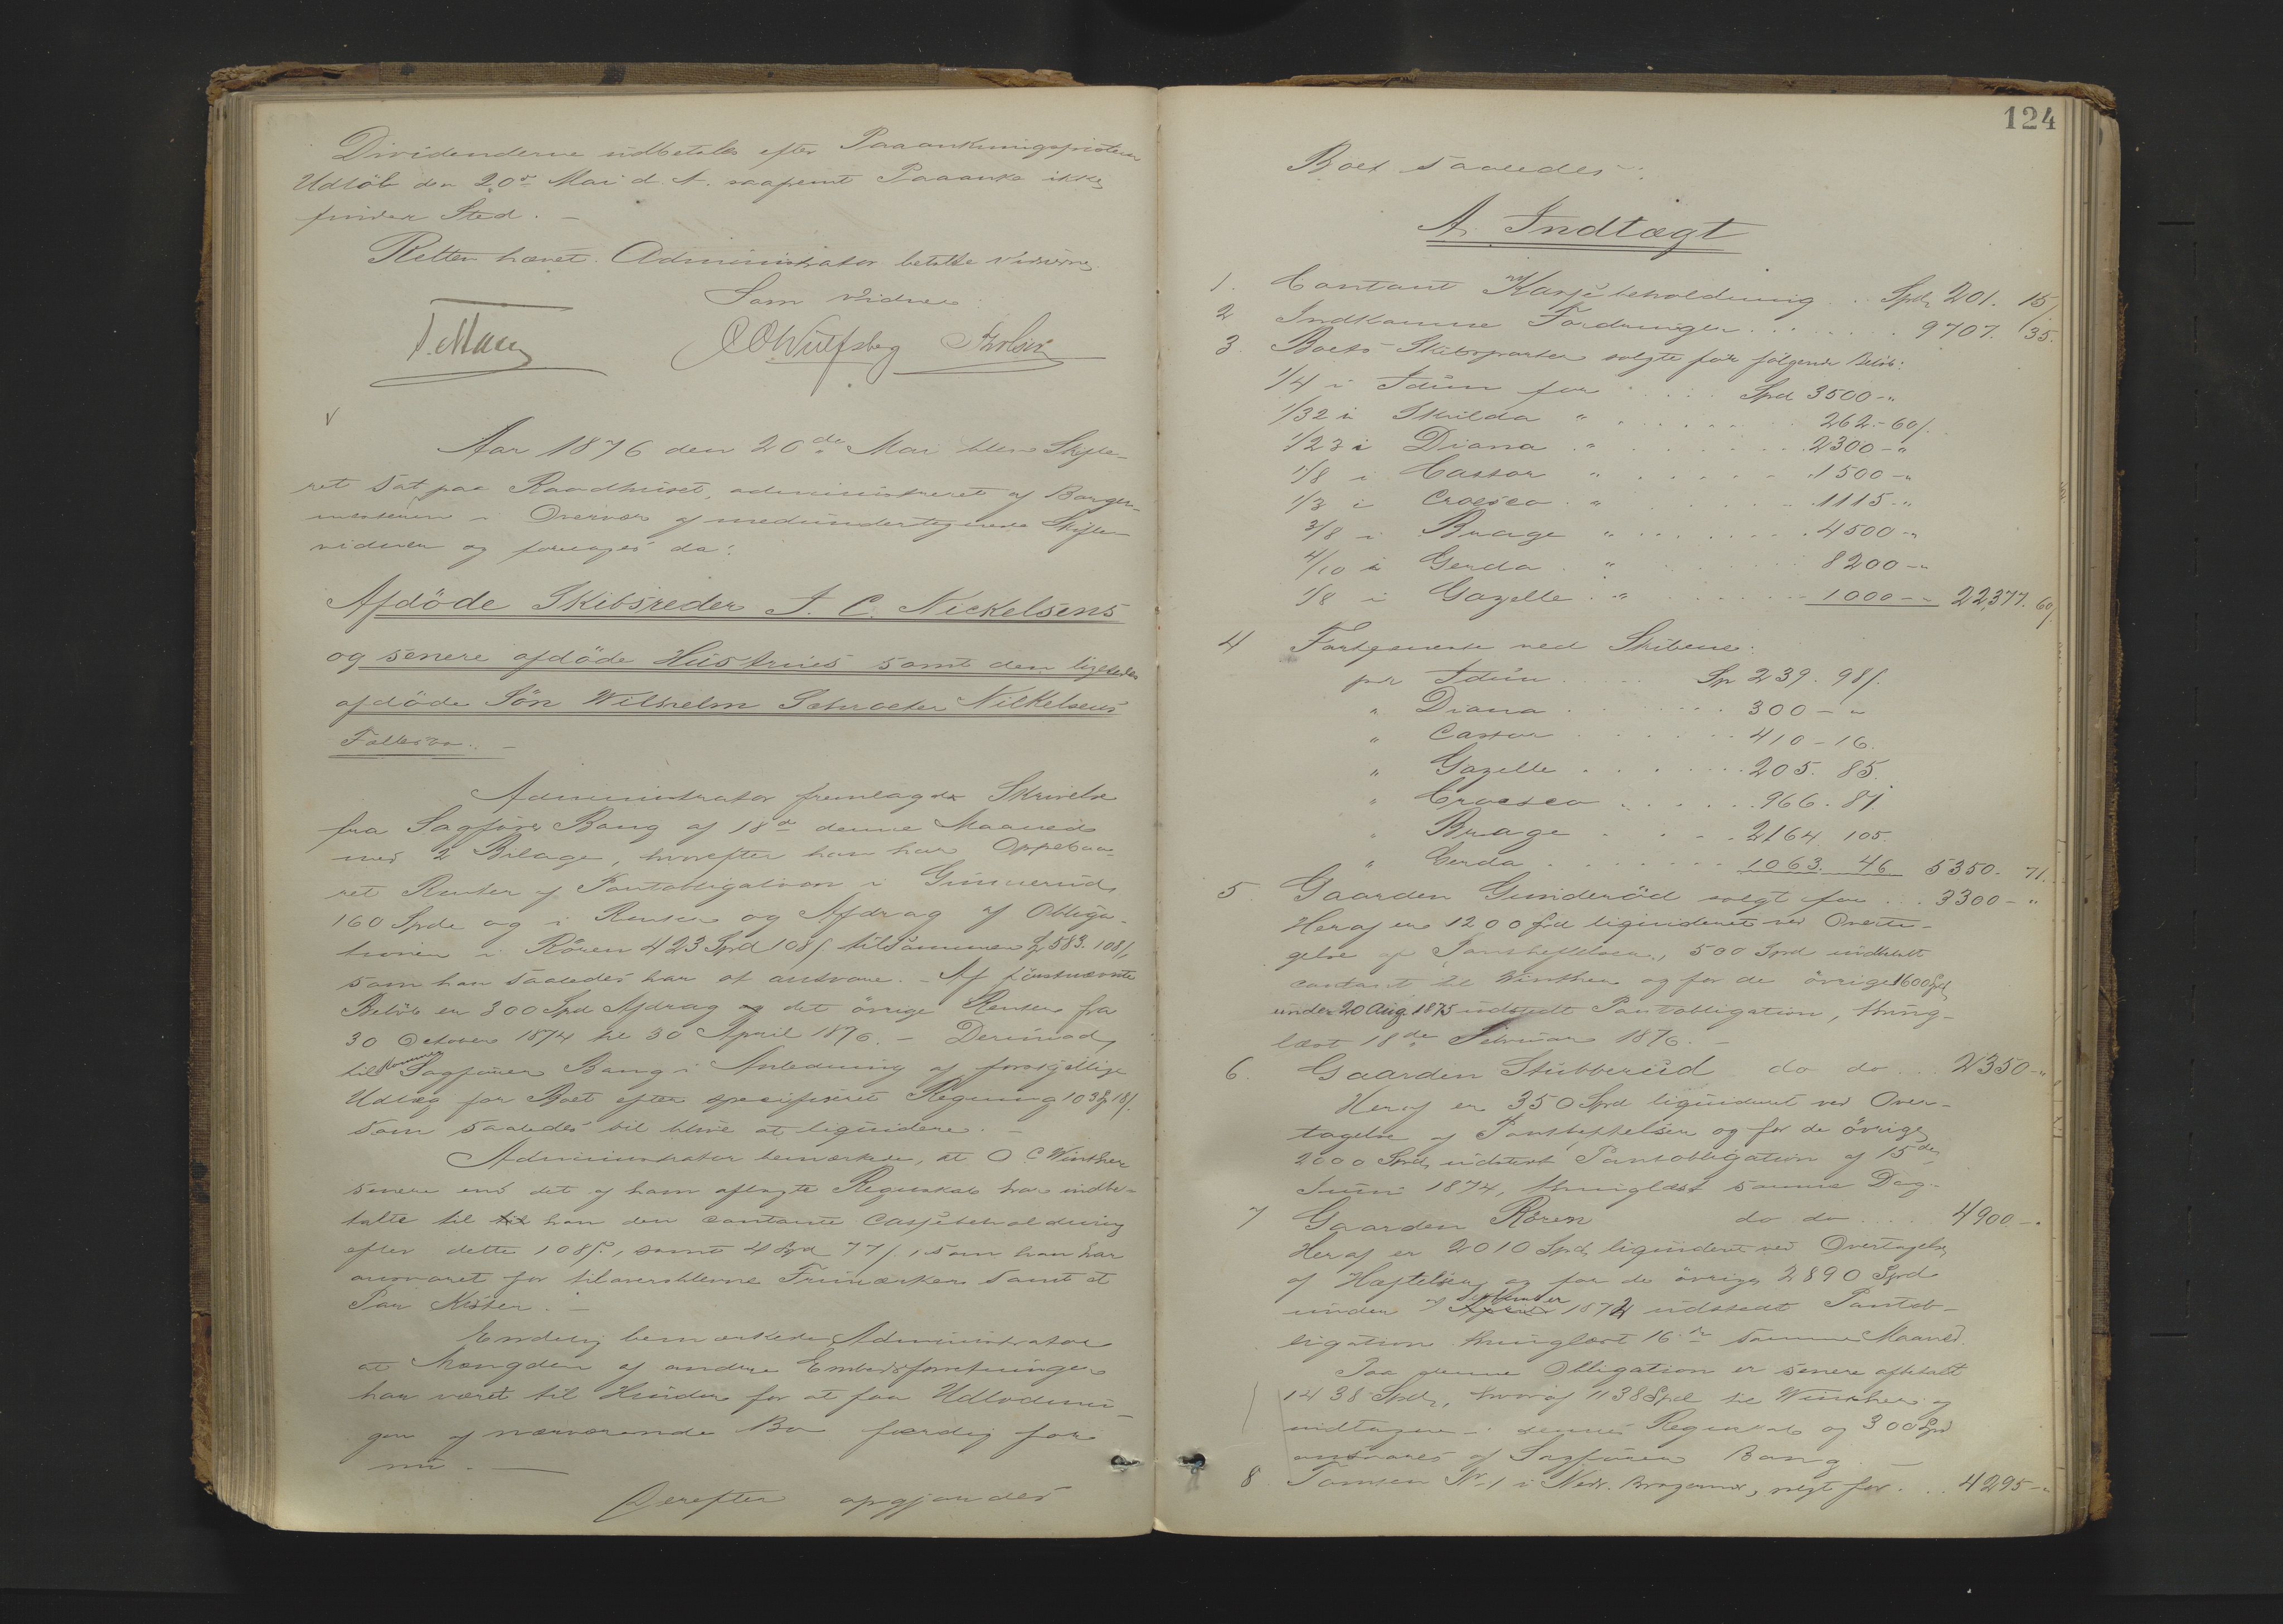 Dividenderne udbetales efter Paaankningsfristens
Udløb den 20de Mai d. A. saafremt Paaanke ikke
finder Sted. –
Retten hævet. Administrator betalte Vidnerne.
Som Vidner:
C O Wulfsberg
Aar 1876 den 20de Mai blev Skifte-
ret sat paa Raadhuset, administreret af Borger-
mesteren i Overvær af medundertegnede Skifte-
vidner og foretages da:
Afdöde Skibsreder J. C. Nickelsens
og senere afdöde Hustrues samt den ligeledes
afdöde Sön Wilhelm Schroeter Nickelsens
Fællesbo. –
Administrator fremlagde Skrivelse
fra Sagförer Bang af 18de denne Maaned
med 2 Bilage, hvorefter han har Oppebaa-
ret Renter af Pantobligation i Gunnerud
160 Spd og i Renter og Afdrag af Obliga-
tionen i Rören 423 Spd 108 s. tilsammen Sp 583. 108 s,
som han saaledes har at ansvare. – Af förstnævnte
Belöb er 300 Spd Afdrag og det övrige Renter fra
30 October 1874 til 30 April 1876. – Derimod
tilkommer Sagförer Bang i Anledning af forskjellige
Udlæg for Boet efter specificeret Regning 103 Sp 18 s.
som saaledes vil blive at liquidere. –
Administrator bemærkede, at O. C. Winther
senere end det af ham aflagte Regnskab har indbe-
talte til til ham den contante Cassebeholdning
efter dette 108 s., samt 4 Spd 77 s., som han har
ansvaret for tiloversblevne Frimærker samt et
Par Kister. –
Endelig bemærkede Administrator
at Mængden af andre Embedsforretninger
har været til Hinder for at faa Udlodnin-
gen af nærværende Bo færdig för
nu. –
Derefter opgjordes
124
Boet saaledes:
A. Indtægt
1. Contant Kassebeholdning . . Spd 201. 15 s
2 Indkomne Fordringer . . . . 9707. 35.
3. Boets Skibsparter solgte for fölgende Belöb:
1/4 i Idun for . . . Spd 3500 - "
1/32 i Skulda " . . . 262 - 60 s.
1/23 i Diana " . . . 2300 - "
1/8 i Castor " . . . 1500 - "
1/3 i Croesco " . . . 1115 - "
3/8 i Brage " . . . 4500 - "
4/10 i Gerda " . . . 8200 - "
1/8 i Gazelle " . . . 1000 - " 22,377. 60 s.
4 Fortjeneste ved Skibene:
per Idun . . . Sp 239. 98 s.
" Diana . . . 300 - "
" Castor . . . 410 - 16.
" Gazelle . . . 205. 85.
" Croesco . . . 966. 81.
" Brage . . . 2164 105.
" Gerda . . . 1063. 46 5350. 71.
5. Gaarden Gunderöd solgt for . . . 3300 - "
Heraf er 1200 Spd liquideret ved Overta-
gelse af Panthæftelser, 500 Spd indbetalt
contant til Winther og for de övrige 1600 Spd
under 20 Aug. 1875 udstedt Pantobligation, thing-
læst 18de Februar 1876. –
6. Gaarden Stubberud do do . . . 2350 - "
Heraf er 350 Spd liquideret ved Over-
tagelse af Panthæftelser og for de övrige
2000 Spd udstedt Pantobligation af 15de
Juni 1874, thinglæst samme Dag. –
7 Gaarden Rören do do . . . 4900 - "
Heraf er 2010 Spd liquideret ved Overtagelse
af Hæftelser og for de övrige 2890 Spd
under 7 September 1874 udstedt Pantob-
ligation thinglæst 16de samme Maaned.
Paa denne Obligation er senere afbetalt
1438 Spd, hvoraf 1138 Spd til Winther og
indtagne i dennes Regnskab og 300 Spd
ansvares af Sagförer Bang. –
8. Tomten No 1 i Nedr. Bragernes, solgt for . . . 4295 - "